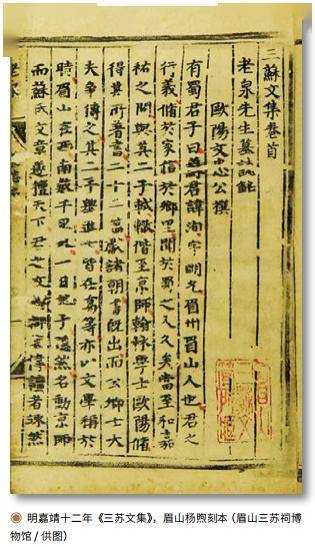 三蘇文集卷首
老泉先生墓誌銘
歐陽文忠公撰
有蜀君子曰蘇君諱洵字明允眉州眉山人也君之
行義修於家信於鄉里聞於蜀之人久矣當至和嘉
祐之間與其二子軾轍偕至京師翰林學士歐陽脩
得其所著書二十二篇獻諸朝書既出而公卿士大
夫爭傳之其二子舉進士皆在高等亦以文學稱於
時眉山在西南數千里外一日父子隱然名動京師
而蘇氏文章遂擅天下君之文博辯宏偉讀者悚然
明嘉靖十二年《三苏文集》，眉山杨煦刻本（眉山三苏祠博
物馆 / 供图）